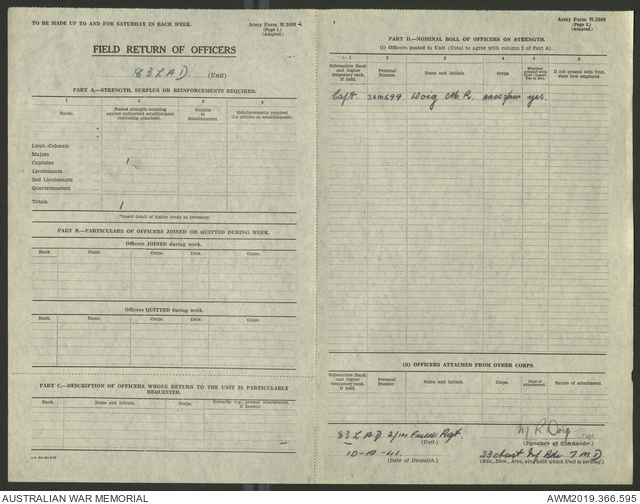 TO BE MADE UP TO AND FOR SATURDAY IN EACH WEEK.
Army Form W.3008
(Page 1.)
(Adapted.)
FIELD RETURN OF OFFICERS
83 L A D. (Unit)
PART A.—STRENGTH, SURPLUS OR REINFORCEMENTS REQUIRED.
1 2 3 4
Ranks. Posted strength counting against authorised establishment (excluding attached). Surplus to Establishment. Reinforcements required (i.e. deficits on establishment).
*
*
Lieut.-Colonels
Majors
Captains 1
Lieutenants
2nd Lieutenants
Quartermasters
Totals 1
*Insert detail of higher ranks as necessary.
PART B.—PARTICULARS OF OFFICERS JOINED OR QUITTED DURING WEEK.
Officers JOINED during week.
Rank. Name. Corps. Date. Cause.
Officers QUITTED during week.
Rank. Name. Corps. Date. Cause.
PART C.—DESCRIPTION OF OFFICERS WHOSE RETURN TO THE UNIT IS PARTICULARLY REQUESTED.
Rank. Name and Initials. Corps. Remarks (e.g., present whereabouts, if known).
Army Form W.3008
(Page 2.)
(Adapted.)
PART D.—NOMINAL ROLL OF OFFICERS ON STRENGTH.
(i) Officers posted to Unit (Total to agree with column 2 of Part A).
1 2 3 4 5 6
Substantive Rank and higher temporary rank, if held. Personal Number. Name and Initials. Corps. Whether present with Unit (insert Yes or No). If not present with Unit, state how employed.
Capt. SX10699 Doig M. R. AAOC yes
(ii) OFFICERS ATTACHED FROM OTHER CORPS.
Substantive Rank and higher temporary rank, if held. Personal Number. Name and Initials. Corps. Date of attachment. Nature of attachment.
83 L A D 2/14 Field Rgt.
(Unit.)
M R Doig Capt.
(Signature of Commander.)
(Date of Despatch.)
23 Aust Inf Bde 7 M D
(Bde., Divn., Area, etc., with which Unit is serving.)
AUSTRALIAN WAR MEMORIAL
AWM2019.366.595